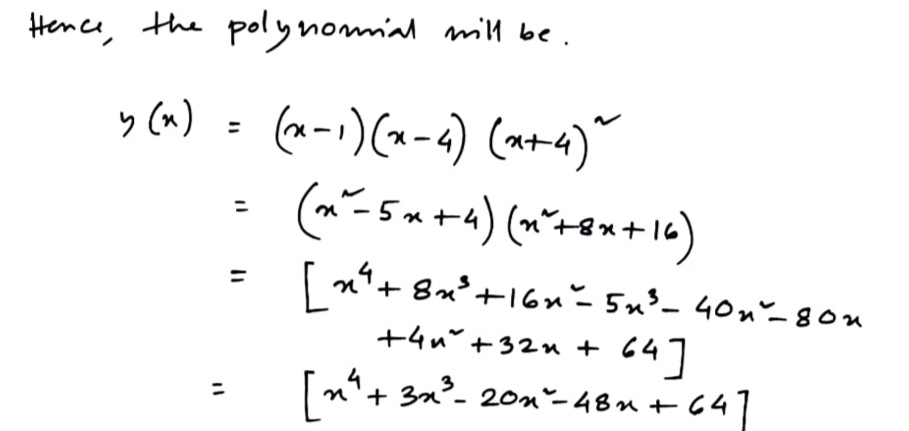 Hence, the polynomial will be.
y(x) = (x-1)(x-4) (x+4)²
= (x²-5x+4)(x²+8x+16)
= [x⁴+8x³+16x²-5x³-40x²-80x
+4x²+32x+64]
= [x⁴+3x³-20x²-48x+64]